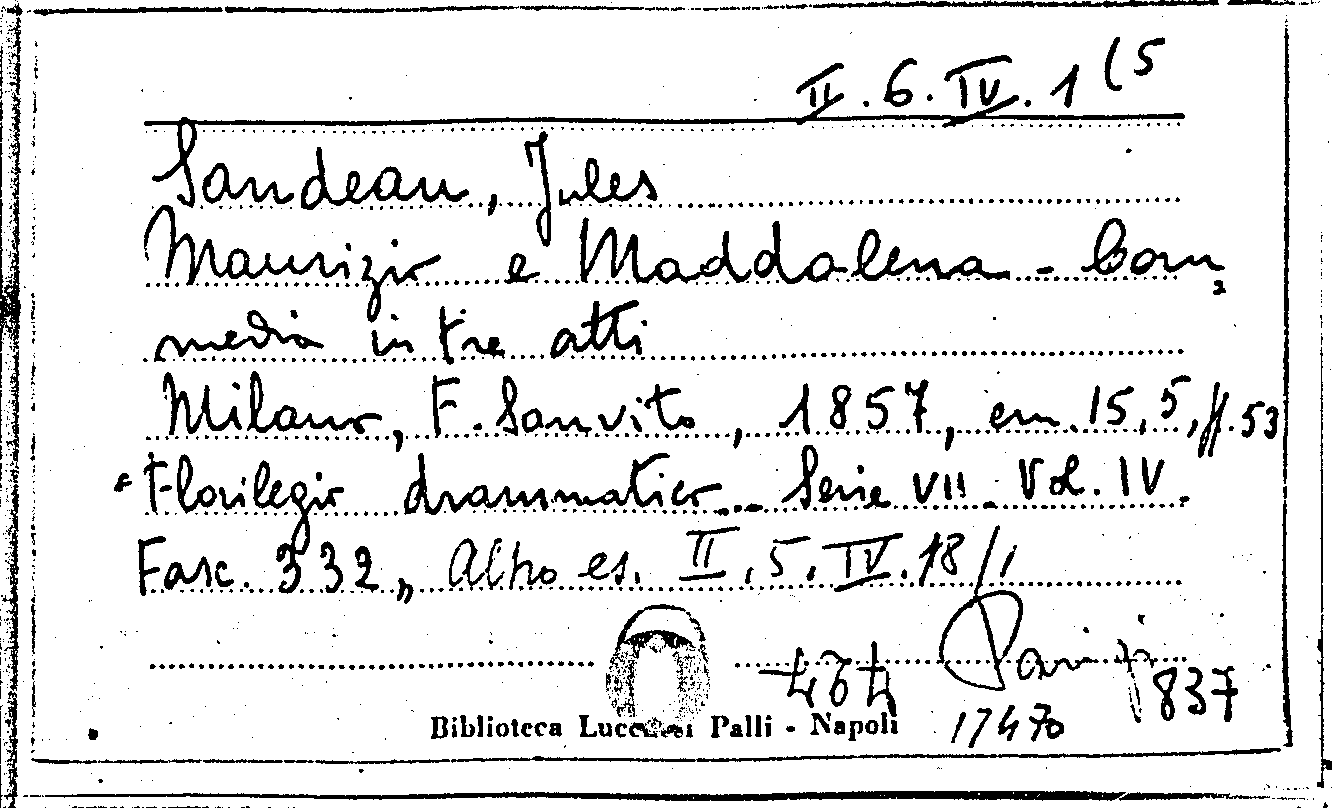 II.6.IV.1(5
Sandeau, Jules
Maurizio e Maddalena - Com=
media in tre atti
Milano, F. Sanvito, 1857, cm. 15,5, ff. 53
"Florilegio drammatico... Serie VII. Vol. IV.
Fasc. 332" Altro es. II.5.IV.18/1
Biblioteca Lucchesi Palli - Napoli
17470
837